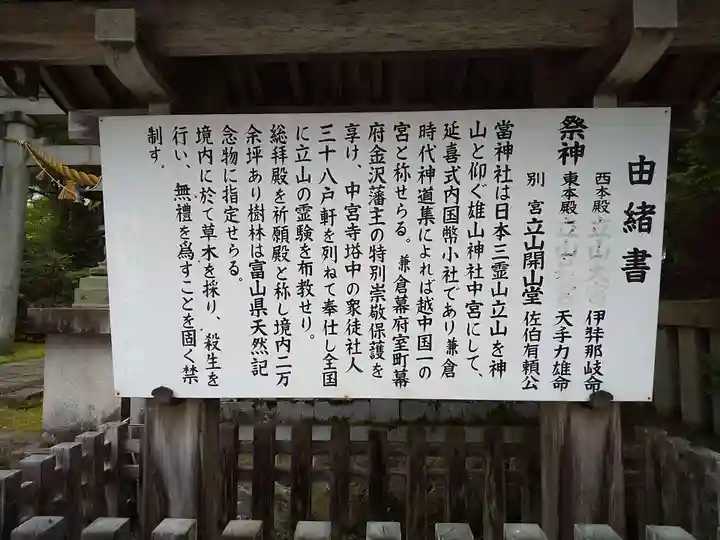 由緒書
祭神
西本殿 立山大宮 伊弉那岐命
東本殿 立山 天手力雄命
別宮 立山開山堂 佐伯有頼公
當神社は日本三霊山立山を神
山と仰ぐ雄山神社中宮にして、
延喜式内国幣小社であり兼倉
時代神道集によれば越中国一の
宮と称せらる。兼倉幕府室町幕
府金沢藩主の特別崇敬保護を
享け、中宮寺塔中の衆徒社人
三十八戸軒を列ねて奉仕し全国
に立山の霊験を布教せり。
総拝殿を祈願殿と称し境内二万
余坪あり樹林は富山県天然記
念物に指定せらる。
境内に於て草木を採り、殺生を
行い、無禮を爲すことを固く禁
制す。